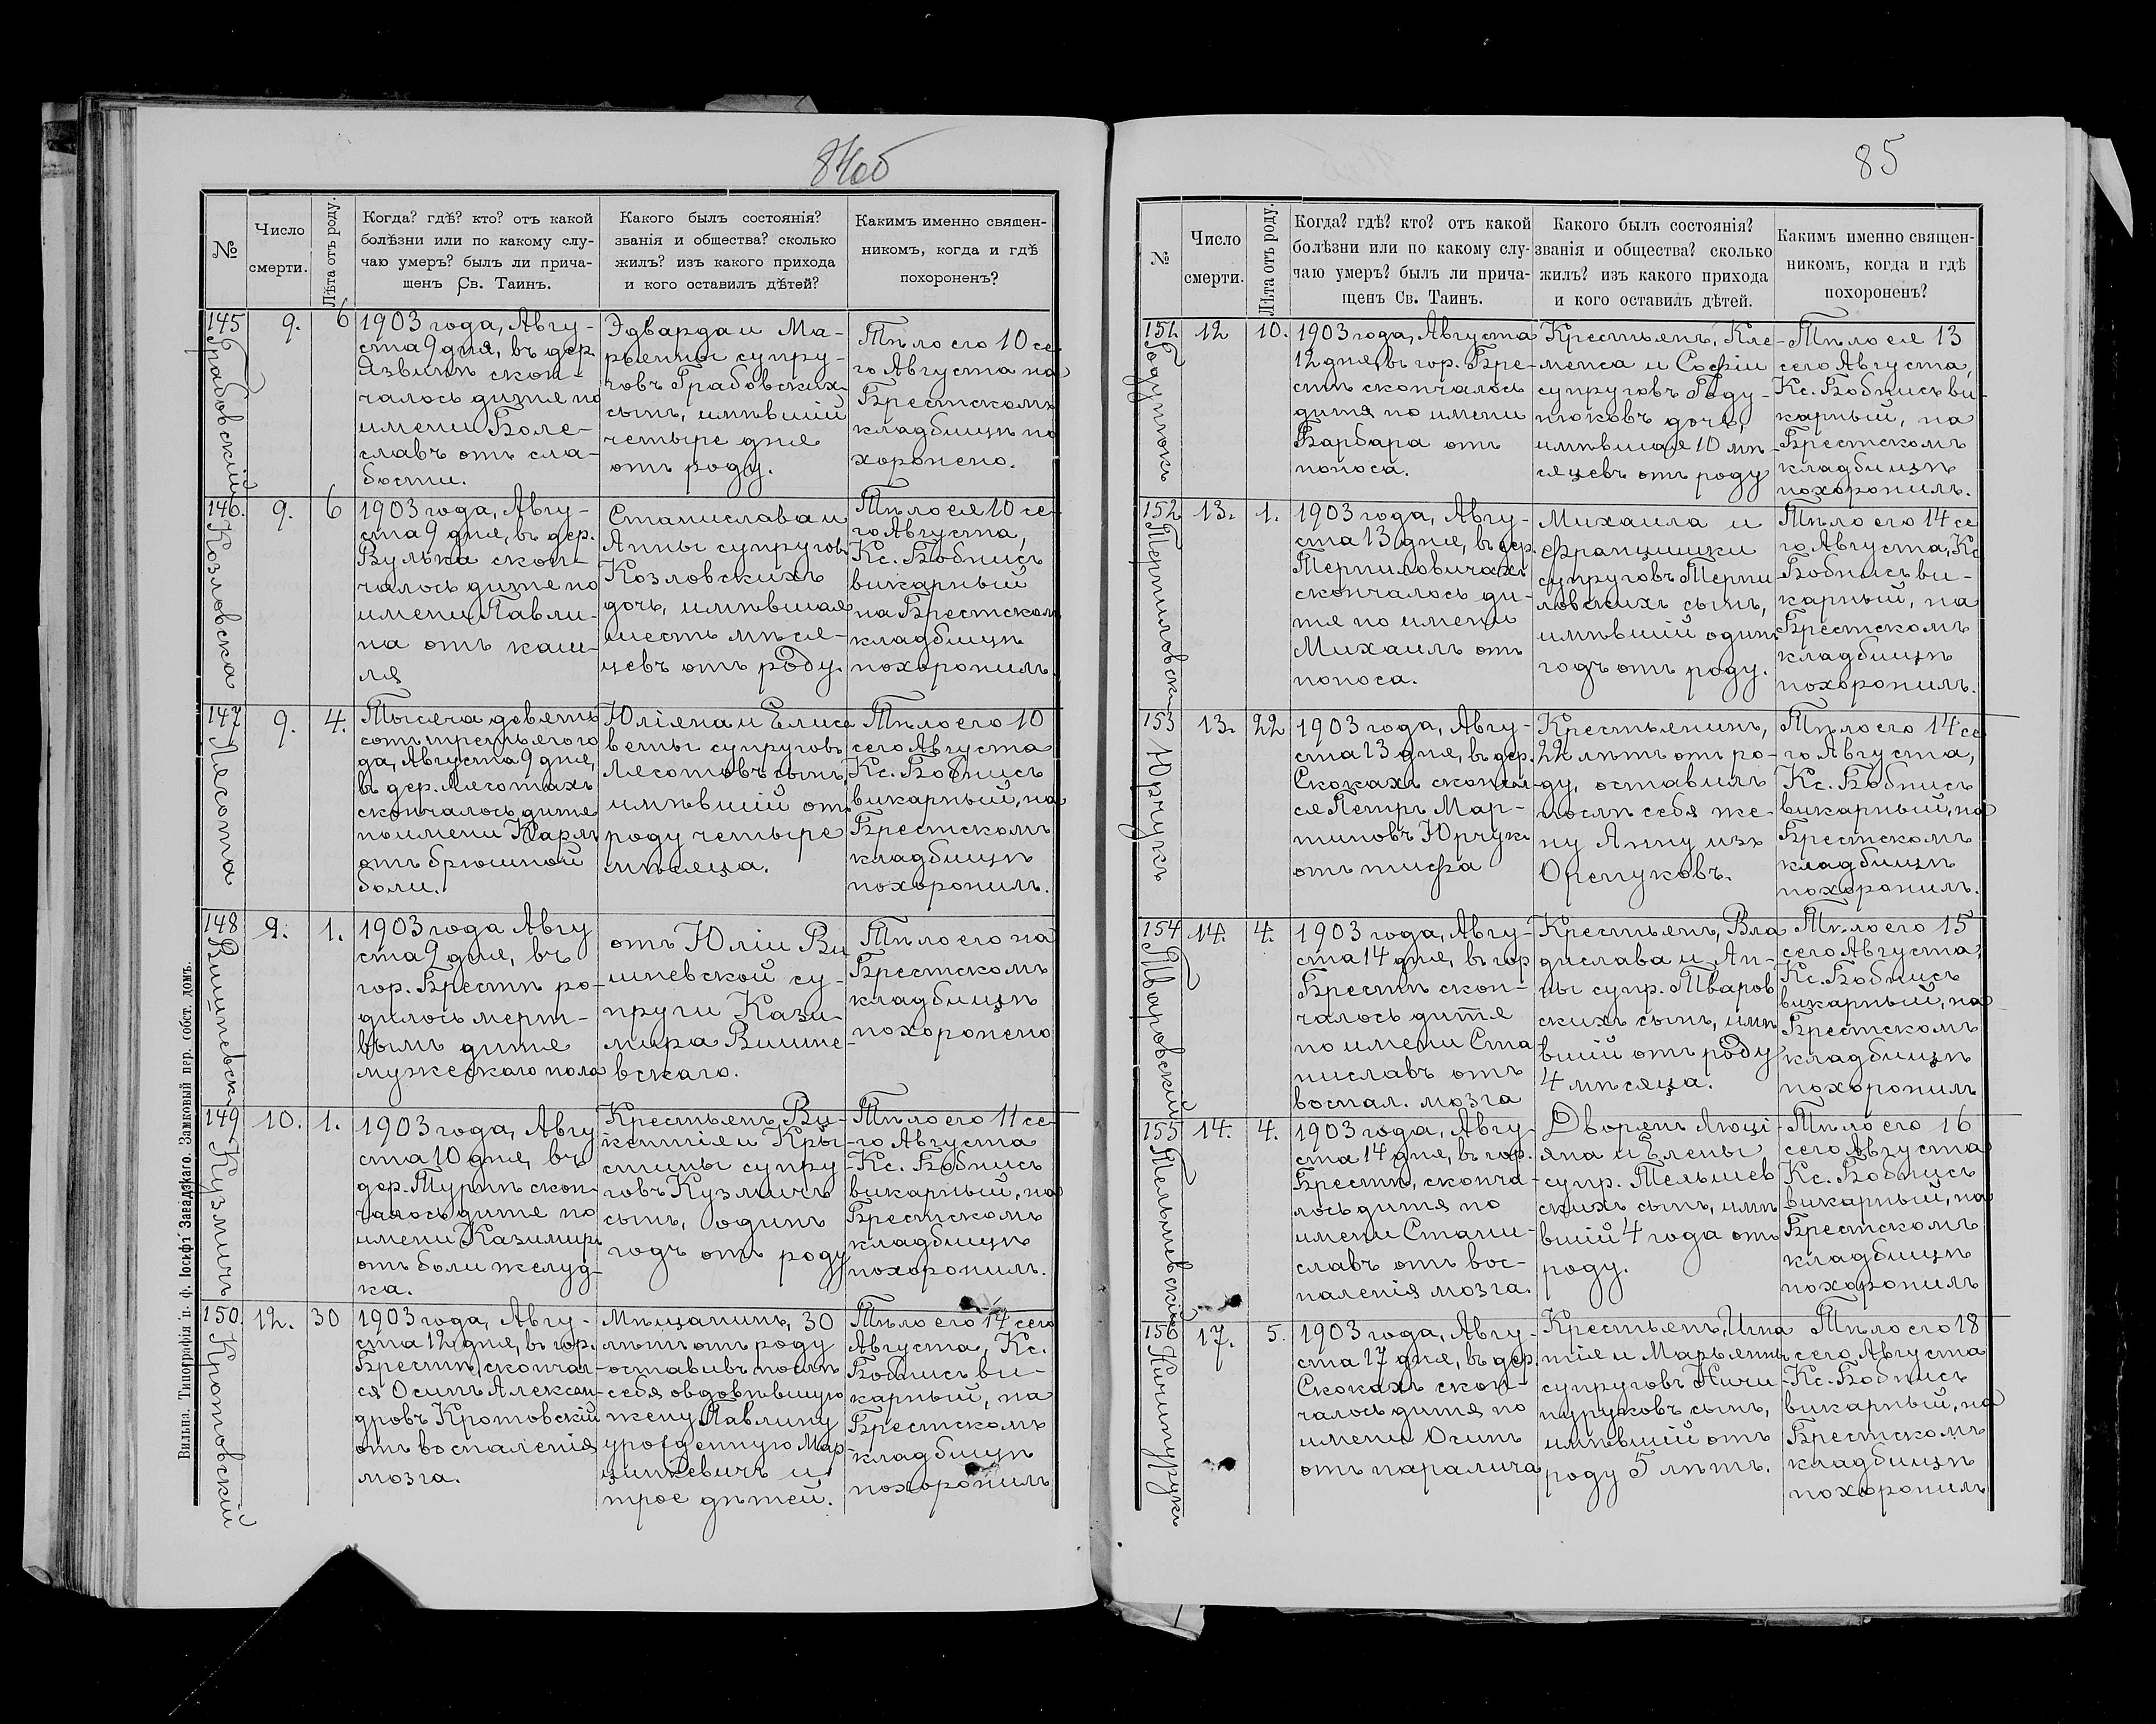 84об
№
Число
смерти.
Лѣта отъ роду.
Когда? гдѣ? кто? отъ какой
болѣзни или по какому слу-
чаю умеръ? былъ ли прича-
щенъ Св. Таинъ.
Какого былъ состоянія?
званія и общества? сколько
жилъ? изъ какого прихода
и кого оставилъ дѣтей?
Какимъ именно священ-
никомъ, когда и гдѣ
похороненъ?
145
Грабовскій
9.
6
1903 года, Авгу-
ста 9 дня, въ дер.
Язвинѣ скон-
чалось дитя по
имени Боле-
славъ отъ сла-
бости.
Эдварда и Ма-
рьянны супру-
говъ Грабовскихъ
сынъ, имѣвшій
четыре дня
отъ роду.
Тѣло его 10 се-
го Августа на
Брестскомъ
кладбищѣ по
хоронено.
146.
Козловска
9.
6
1903 года, Авгу-
ста 9 дня, въ дер.
Вулька скон-
чалось дитя по
имени Павли-
на отъ каш-
ля
Станислава и
Анны супруговъ
Козловскихъ
дочь, имѣвшая
шесть мѣся-
цевъ отъ роду.
Тѣло ея 10 се-
го Августа,
Кс. Бобнисъ
викарный
на Брестскомъ
кладбищѣ
похоронилъ.
147
Лясота
9.
4.
Тысяча девять
сотъ третьяго го
да, Августа 9 дня,
въ дер. Лясотахъ
скончалось дитя
по имени Карлъ
отъ брюшной
боли.
Юліяна и Елиса
веты супруговъ
Лясотовъ сынъ,
имѣвшій отъ
роду четыре
мѣсяца.
Тѣло его 10
сего Августа
Кс. Бобнисъ
викарный, на
Брестскомъ
кладбищѣ
похоронилъ.
148
Вишневскій
9.
1.
1903 года Авгу
ста 9 дня, въ
гор. Брестѣ ро-
дилось мерт-
вымъ дитя
мужескаго пола
отъ Юліи Ви
шневской су-
пруги Кази-
мира Вишне-
вскаго.
Тѣло его на
Брестскомъ
кладбищѣ
похоронено
149
Кузмичъ
10.
1.
1903 года, Авгу
ста 10 дня, въ
дер. Турнѣ скон-
чалось дитя по
имени Казимиръ
отъ боли желуд-
ка.
Крестьянъ, Ви-
кентія и Кры-
стины супру
говъ Кузмичъ
сынъ, одинъ
годъ отъ роду
Тѣло его 11 се-
го Августа
Кс. Бобнисъ
викарный, на
Брестскомъ
кладбищѣ
похоронилъ.
150.
Кротовскій
12.
30
1903 года, Авгу-
ста 12 дня, въ гор.
Брестѣ, скончал-
ся Осипъ Алексан-
дровъ Кротовскій
отъ воспаленія
мозга.
Мѣщанинъ, 30
лѣтъ отъ роду
оставивъ послѣ
себя овдовѣвшую
жену Павлину
урожденную Мар
цинкевичъ и
трое дѣтей.
Тѣло его 14 сего
Августа, Кс.
Бобнисъ ви-
карный, на
Брестскомъ
кладбищѣ
похоронилъ
Вильна. Типографія п. ф. Іосифъ Завадзкаго. Замковый пер. собст. домъ.
85
№
Число
смерти.
Лѣта отъ роду.
Когда? гдѣ? кто? отъ какой
болѣзни или по какому слу-
чаю умеръ? былъ ли прича-
щенъ Св. Таинъ.
Какого былъ состоянія?
званія и общества? сколько
жилъ? изъ какого прихода
и кого оставилъ дѣтей.
Какимъ именно священ-
никомъ, когда и гдѣ
похороненъ?
151.
Годунюкъ
12
10.
1903 года, Августа
12 дня, въ гор. Бре-
стѣ скончалось
дитя по имени
Барбара отъ
поноса.
Крестьянъ, Кле-
менса и Софіи
супруговъ Году-
нюковъ дочь,
имѣвшая 10 мѣ-
сяцевъ отъ роду
Тѣло ея 13
сего Августа,
Кс. Бобнисъ ви-
карный, на
Брестскомъ
кладбищѣ
похоронилъ.
152
Терпиловскій
13.
1.
1903 года, Авгу-
ста 13 дня, въ дер.
Терпиловичахъ
скончалось ди-
тя по имени
Михаилъ отъ
поноса.
Михаила и
Францишки
супруговъ Терпи
ловскихъ сынъ,
имѣвшій одинъ
годъ отъ роду.
Тѣло его 14 се
го Августа, Кс
Бобнисъ ви-
карный, на
Брестскомъ
кладбищѣ
похоронилъ.
153
Юрчукъ
13.
22
1903 года, Авгу-
ста 13 дня, въ дер.
Скокахъ скончал-
ся Петръ Мар-
тиновъ Юрчукъ
отъ тифа
Крестьянинъ,
22 лѣтъ отъ ро-
ду, оставилъ
послѣ себя же-
ну Анну изъ
Тѣло его 14 се
го Августа,
Кс. Бобнисъ
викарный, на
Брестскомъ
кладбищѣ
похоронилъ.
154
Тваровскій
14.
4.
1903 года, Авгу-
ста 14 дня, въ гор
Брестѣ скон-
чалось дитя
по имени Ста
ниславъ отъ
воспал. мозга
Крестьянъ, Вла
дислава и Ан-
ны супр. Тваров
скихъ сынъ, имѣ
вшій отъ роду
4 мѣсяца.
Тѣло его 15
сего Августа,
Кс. Бобнисъ
викарный, на
Брестскомъ
кладбищѣ
похоронилъ
155
Тельшевскій
14.
4.
1903 года, Авгу
ста 14 дня, въ гор.
Брестѣ, сконча-
лось дитя по
имени Стани-
славъ отъ вос-
паленія мозга.
Дворянъ Люці-
яна и Елены
супр. Тельшев
скихъ сынъ, имѣ
вшій 4 года отъ
роду.
Тѣло его 16
сего Августа
Кс. Бобнисъ
викарный, на
Брестскомъ
кладбищѣ
похоронилъ
156
Ничипурукъ
17.
5.
1903 года, Авгу-
ста 17 дня, въ дер.
Скокахъ скон-
чалось дитя по
имени Осипъ
отъ паралича
Крестьянъ, Игна
тія и Марьянны
супруговъ Ничи
пуруковъ сынъ,
имѣвшій отъ
роду 5 лѣтъ.
Тѣло его 18
сего Августа
Кс. Бобнисъ
викарный, на
Брестскомъ
кладбищѣ
похоронилъ